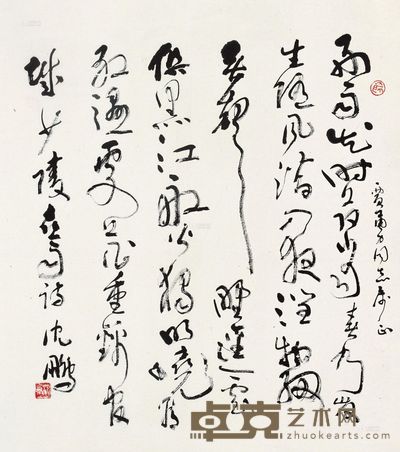 好雨知时节当春乃发
生随风潜入夜润物细
无声 野径云
俱黑江船火独明晓看
红湿处花重锦官
城少陵喜雨诗 沈鹏
同志属正
卓克艺术网
zhuokearts.com